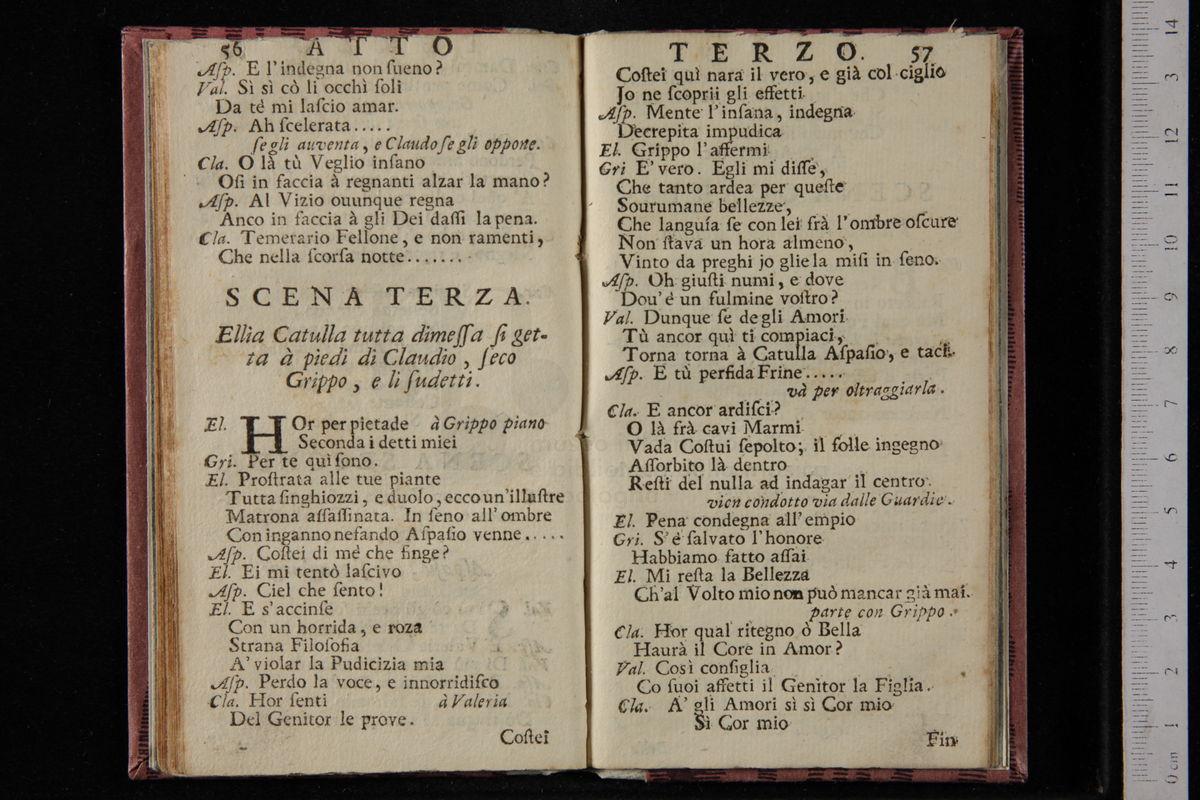 56 ATTO
Aſp. E l'indegna non ſueno?
Val. Sì sì cò li occhì ſoli
Da té mi laſcio amar.
Aſp. Ah ſcelerata.....
ſe gli auventa, e Claudo ſe gli oppone.
Cla. O là tù Veglio inſano
Oſi in faccia à regnanti alzar la mano?
Aſp. Al Vizio ouunque regna
Anco in faccia à gli Dei daſſi la pena.
Cla. Temerario Fellone, e non ramenti,
Che nella ſcorſa notte.......
SCENA TERZA.
Ellia Catulla tutta dimeſſa ſi get-
ta à piedi di Claudio, ſeco
Grippo, e li ſudetti.
El. HOr per pietade à Grippo piano
Seconda i detti miei
Gri. Per te quì ſono.
El. Proſtrata alle tue piante
Tutta ſinghiozzi, e duolo, ecco un'illuſtre
Matrona aſſaſſinata. In ſeno all'ombre
Con inganno nefando Aſpaſio venne.....
Aſp. Coſtei di mé che finge?
El. Ei mi tentò laſcivo
Aſp. Ciel che ſento!
El. E s'accinſe
Con un horrida, e roza
Strana Filoſofia
A' violar la Pudicizia mia
Aſp. Perdo la voce, e innorridiſco
Cla. Hor ſenti à Valeria
Del Genitor le prove.
Coſtei
TERZO. 57
Coſtei quì nara il vero, e già col ciglio
Jo ne ſcoprii gli effetti
Aſp. Mente l'inſana, indegna
Decrepita impudica
El. Grippo l'affermi
Gri E' vero. Egli mi diſſe,
Che tanto ardea per queſte
Sourumane bellezze,
Che languía ſe con lei frà l'ombre oſcure
Non ſtava un hora almeno,
Vinto da preghi jo glie la miſi in ſeno.
Aſp. Oh giuſti numi, e dove
Dou'é un fulmine voſtro?
Val. Dunque ſe degli Amori
Tù ancor quì ti compiaci,
Torna torna à Catulla Aſpaſio, e taci.
Aſp. E tù perfida Frine.....
và per oltraggiarla.
Cla. E ancor ardiſci?
O là frà cavi Marmi
Vada Coſtui ſepolto; il folle ingegno
Aſſorbito là dentro
Reſti del nulla ad indagar il centro.
vien condotto via dalle Guardie.
El. Pena condegna all'empio
Gri. S'é ſalvato l'honore
Habbiamo fatto aſſai
El. Mi reſta la Bellezza
Ch'al Volto mio non può mancar già mai.
parte con Grippo.
Cla. Hor qual ritegno ò Bella
Haurà il Core in Amor?
Val. Così conſiglia
Co ſuoi affetti il Genitor la Figlia.
Cla. A' gli Amori sì sì Cor mio
Sì Cor mio
Fin
14
3
12
11
10
9
8
7
6
5
4
3
2
1
0 cm